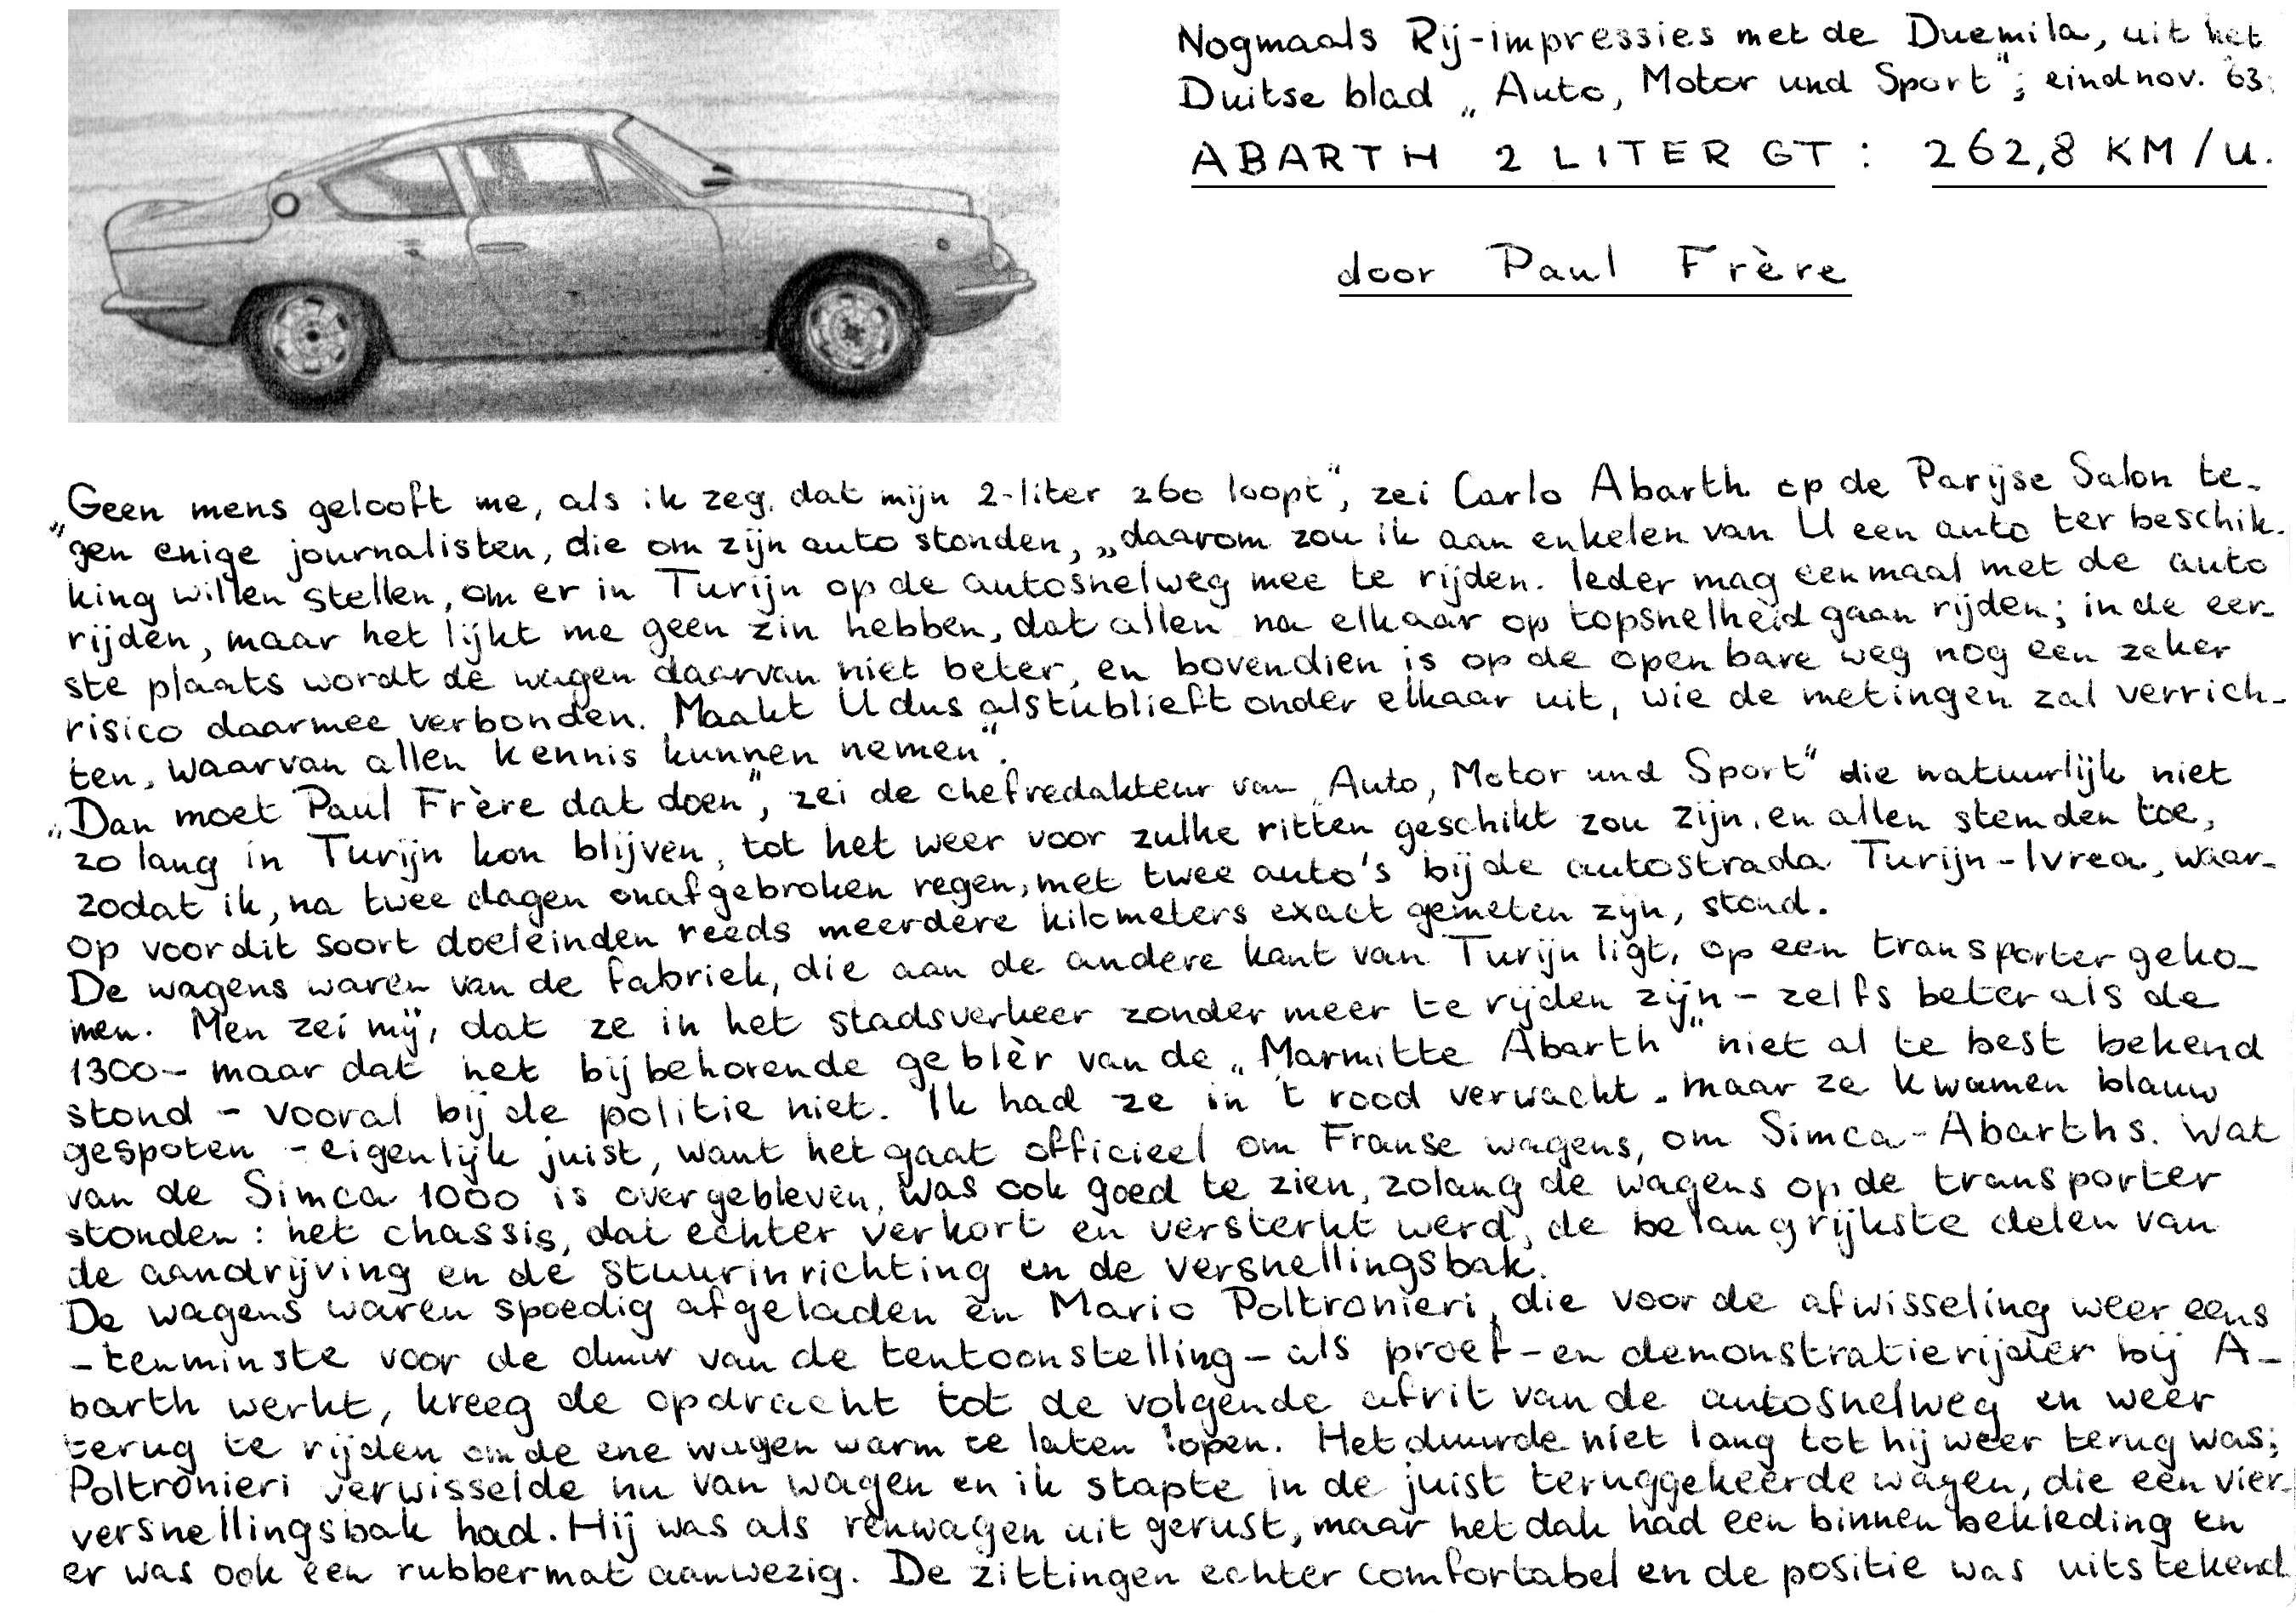 Nogmaals Rij-impressies met de Duemila, uit het
Duitse blad „Auto, Motor und Sport"; eind nov. '63:
ABARTH 2 LITER GT : 262,8 KM/U.
door Paul Frère
„Geen mens gelooft me, als ik zeg, dat mijn 2-liter 260 loopt", zei Carlo Abarth op de Parijse Salon te-
gen enige journalisten, die om zijn auto stonden, „daarom zou ik aan enkelen van U een auto ter beschik-
king willen stellen, om er in Turijn op de autosnelweg mee te rijden. Ieder mag eenmaal met de auto
rijden, maar het lijkt me geen zin hebben, dat allen na elkaar op topsnelheid gaan rijden; in de eer-
ste plaats wordt de wagen daarvan niet beter, en bovendien is op de openbare weg nog een zeker
risico daarmee verbonden. Maakt U dus alstublieft onder elkaar uit, wie de metingen zal verrich-
ten, waarvan allen kennis kunnen nemen".
„Dan moet Paul Frère dat doen", zei de chefredakteur van „Auto, Motor und Sport" die natuurlijk niet
zo lang in Turijn kon blijven, tot het weer voor zulke ritten geschikt zou zijn, en allen stemden toe,
zodat ik, na twee dagen onafgebroken regen, met twee auto's bij de autostrada Turijn-Ivrea, waar-
op voor dit soort doeleinden reeds meerdere kilometers exact gemeten zijn, stond.
De wagens waren van de fabriek, die aan de andere kant van Turijn ligt, op een transporter geko-
men. Men zei mij, dat ze in het stadsverkeer zonder meer te rijden zijn - zelfs beter als de
1300 - maar dat het bijbehorende geblèr van de „Marmitte Abarth" niet al te best bekend
stond - vooral bij de politie niet. Ik had ze in 't rood verwacht. maar ze kwamen blauw
gespoten - eigenlijk juist, want het gaat officieel om Franse wagens, om Simca-Abarths. Wat
van de Simca 1000 is overgebleven, was ook goed te zien, zolang de wagens op de transporter
stonden: het chassis, dat echter verkort en versterkt werd, de belangrijkste delen van
de aandrijving en de stuurinrichting en de versnellingsbak.
De wagens waren spoedig afgeladen en Mario Poltronieri, die voor de afwisseling weer eens
- tenminste voor de duur van de tentoonstelling - als proef-en demonstratierijder bij A-
barth werkt, kreeg de opdracht tot de volgende afrit van de autosnelweg en weer
terug te rijden om de ene wagen warm te laten lopen. Het duurde niet lang tot hij weer terug was;
Poltronieri verwisselde nu van wagen en ik stapte in de juist teruggekeerde wagen, die een vier-
versnellingsbak had. Hij was als renwagen uitgerust, maar het dak had een binnenbekleding en
er was ook een rubbermat aanwezig. De zittingen echter comfortabel en de positie was uitstekend